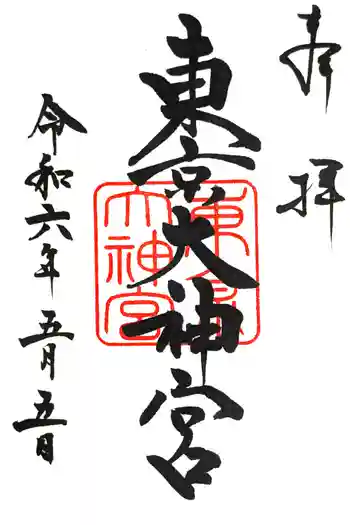 奉拝
東京大神宮
東京大神宮
令和六年五月五日